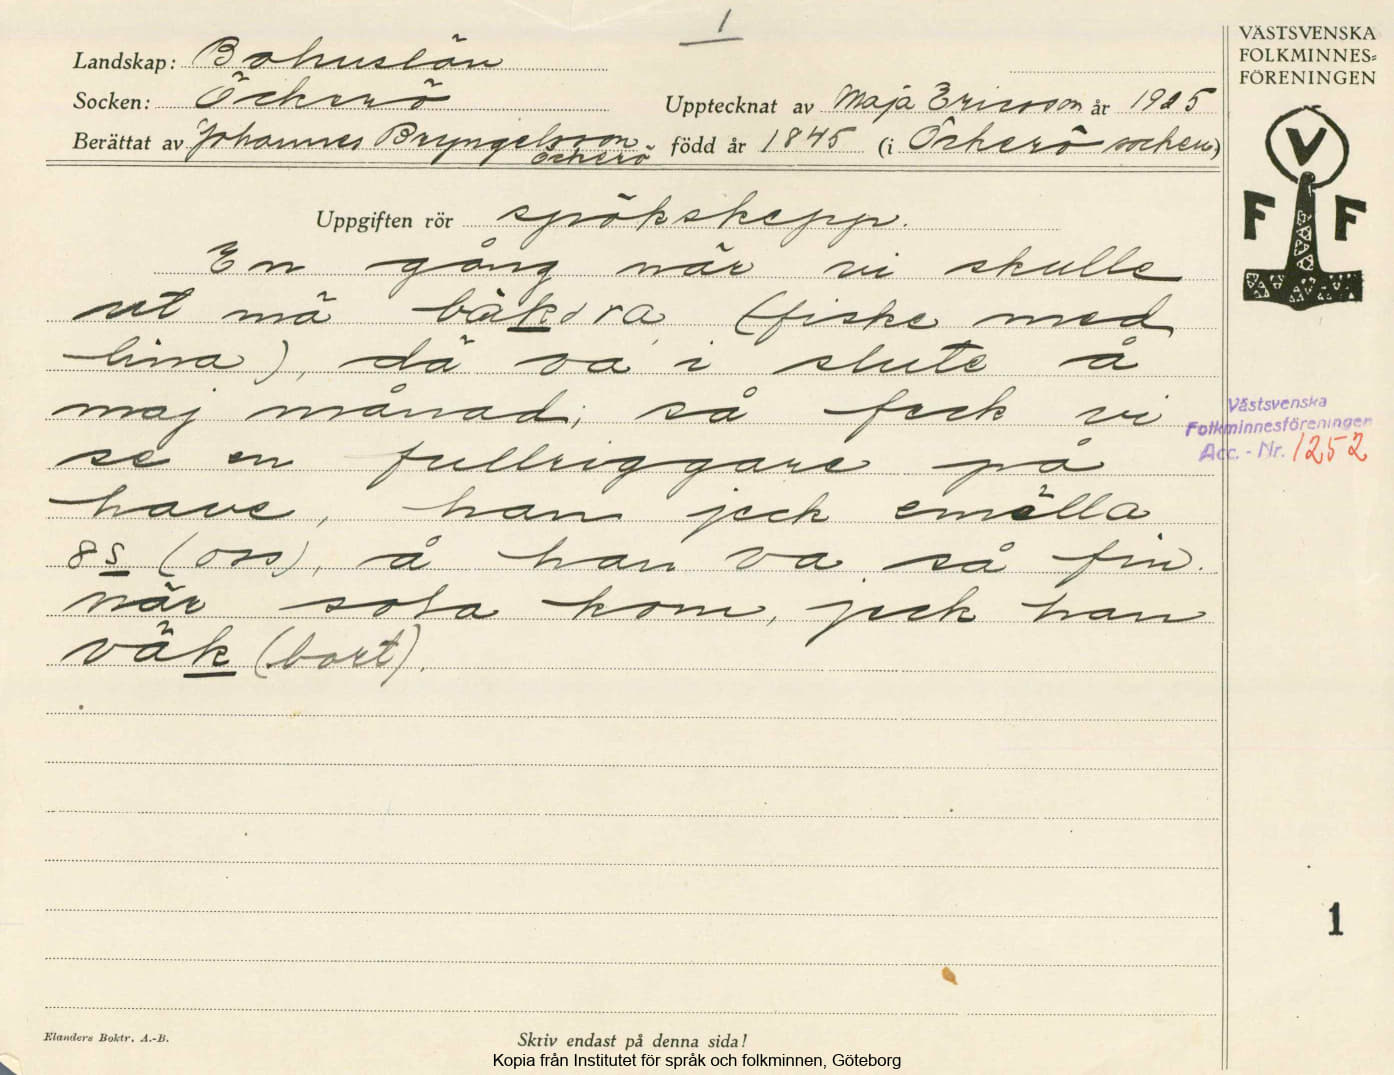 1
VÄSTSVENSKA
FOLKMINNES=
FÖRENINGEN
Landskap: Bohuslän
Socken: Öckerö
Upptecknat av Maja Ericsson år 1925
Berättat av Johannes Bryngelsson Öckerö född år 1845 (i Öckerö socken)
V
F F
Uppgiften rör spökskepp.
En gång när vi skulle
ut mä bàkora (fiske med
lina), dä va i slute å
maj månad, så feck vi
se en fullriggare på
have, han jeck emälla
8s (oss), å han va så fin.
när sola kom, jeck han
väk (bort).
Västsvenska
Folkminnesföreningen
Acc. - Nr. 1252
1
Elanders Boktr. A.-B.
Skriv endast på denna sida!
Kopia från Institutet för språk och folkminnen, Göteborg